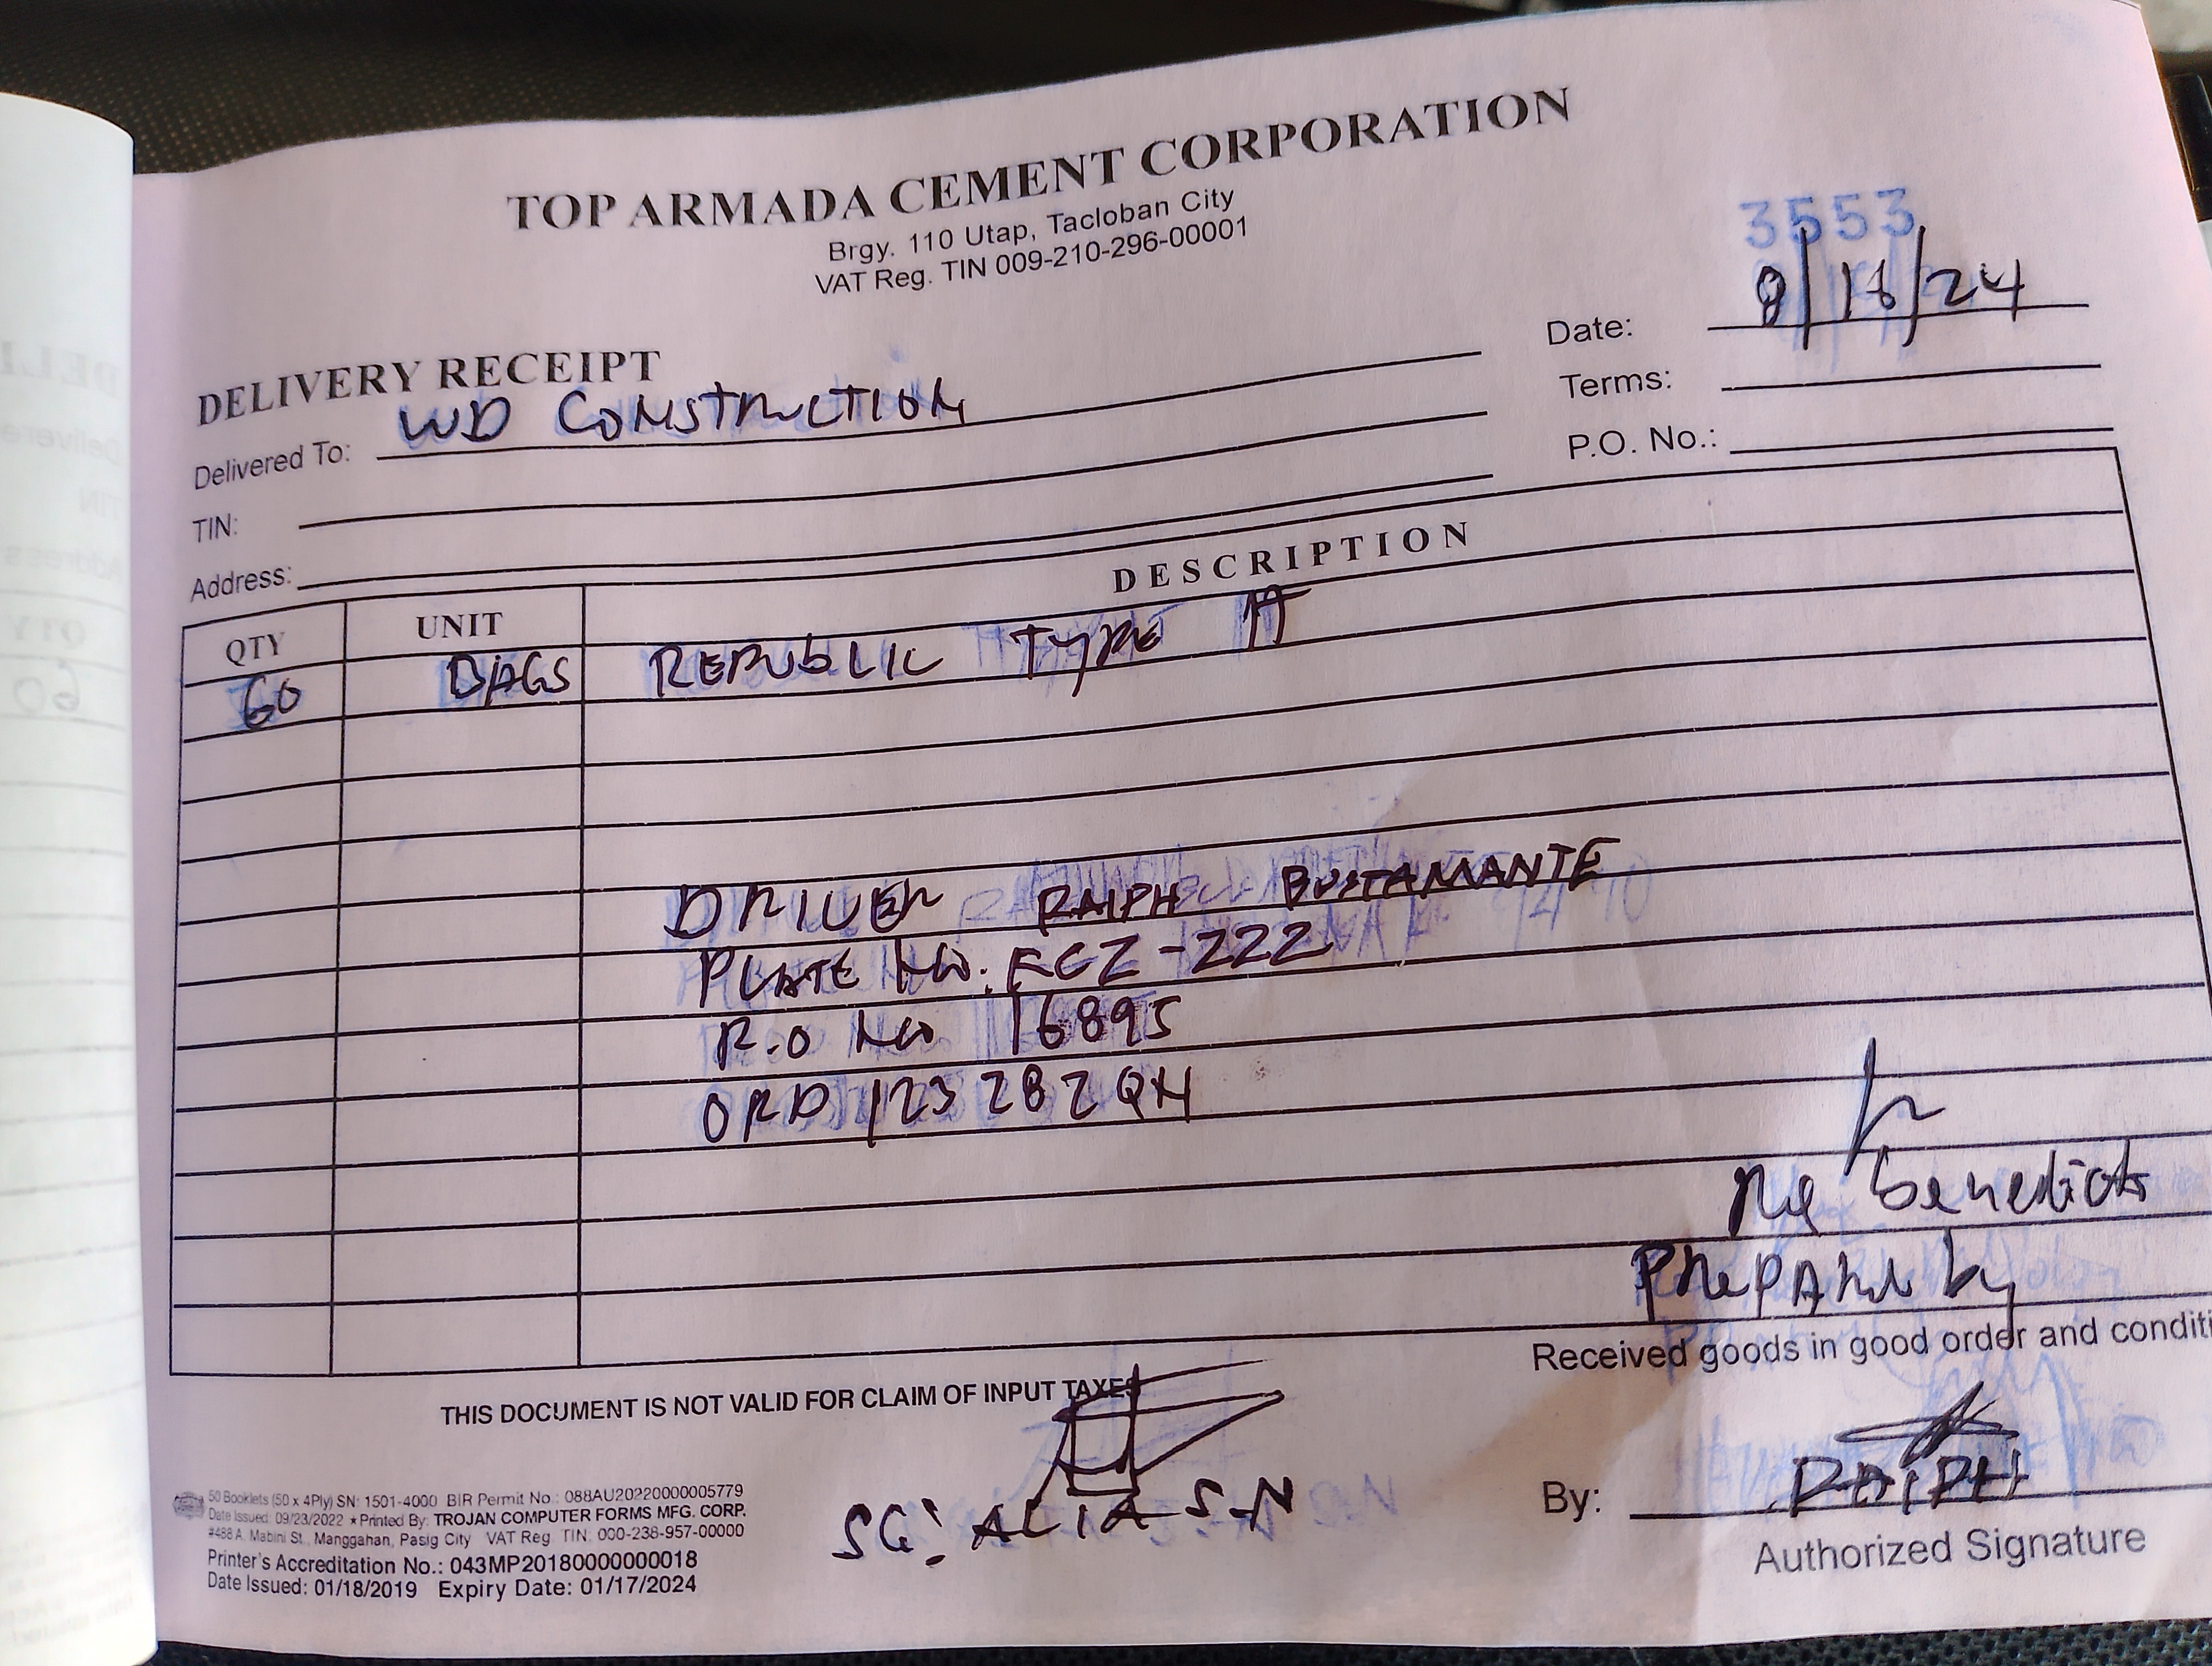 TOP ARMADA CEMENT CORPORATION
Brgy. 110 Utap, Tacloban City
VAT Reg. TIN 009-210-296-00001
3553
DELIVERY RECEIPT
Date: 9/18/24
Delivered To: WD CONSTRUCTION
Terms:
TIN:
P.O. No.:
Address:
QTY UNIT DESCRIPTION
60 BAGS REPUBLIC TYPE
DRIVER RALPH BUSTAMANTE
PLATE No. -222
R.O No 16895
ORD 123282QN
benedicto
PREPARED by
Received goods in good order and conditi
THIS DOCUMENT IS NOT VALID FOR CLAIM OF INPUT TAXES
SG: ALIAS-N
By: RALPH
Authorized Signature
50 Booklets (50 x 4Ply) SN: 1501-4000 BIR Permit No.: 088AU20220000005779
Date Issued: 09/23/2022 ★ Printed By: TROJAN COMPUTER FORMS MFG. CORP.
#488 A. Mabini St., Manggahan, Pasig City VAT Reg. TIN: 000-238-957-00000
Printer's Accreditation No.: 043MP20180000000018
Date Issued: 01/18/2019 Expiry Date: 01/17/2024